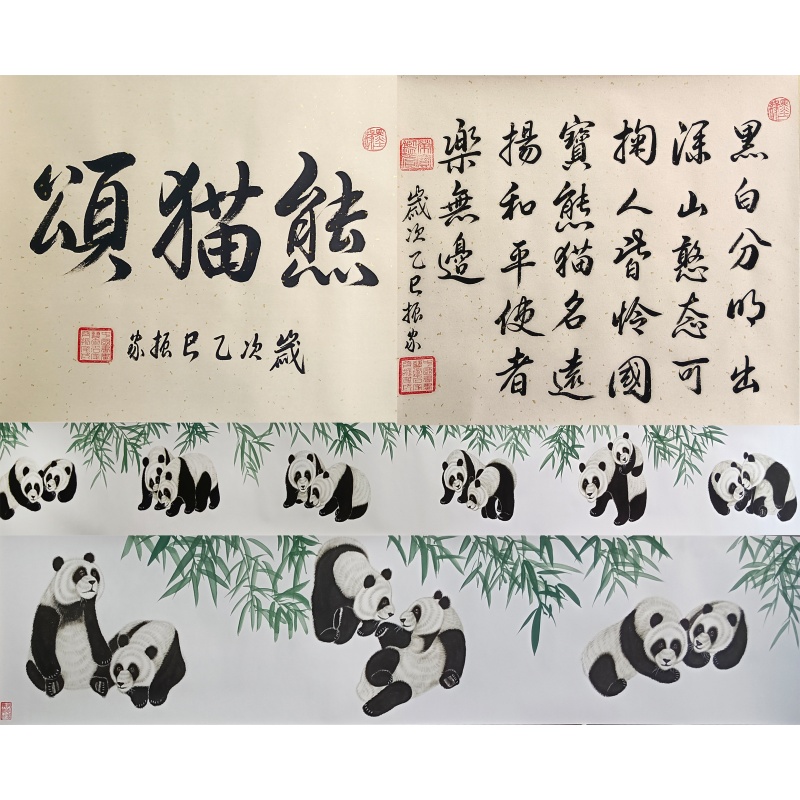 熊猫頌
歲次乙巳振家
黑白分明出
深山憨态可
掬人皆怜國
寶熊猫名遠
揚和平使者
樂無邊
歲次乙巳振家